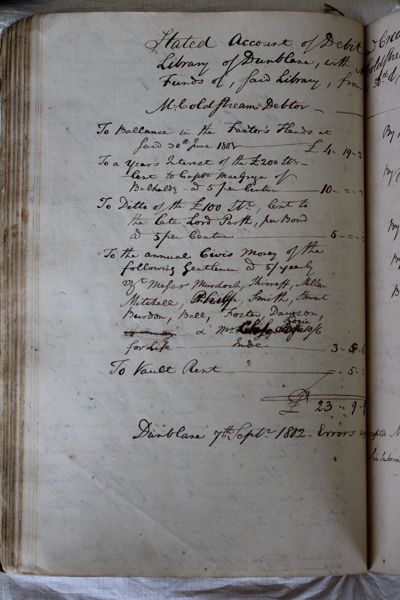 Stated Account of Debit
Library of Dunblane, with
Funds of, said Library, from
Mr Coldstream Debtor
To Ballance in the Factor's Hands at
said 30th June 1801 £ 4 - 19 - 3
To a year's Interest of the £200 Str
Lent to Captn MacGregor of
Balhaldy @ 5 per Centum 10 - = - =
To Ditto of the £100 Str, Lent to
the late Lord Perth, per Bond
@ 5 per Centum 5 - = - =
To the annual Civis Money of the
following Gentlemen @ 5/ yearly
Messrs Murdoch, Sherriff, Millar
Mitchell, Smith, Stuart
Burdon, Ball, Foster, Dawson,
& Mr
for Life 3 -
To Vault Rent 5 -
£ 23 - 9 -
Dunblane 7th Septr. 1802 - Errors